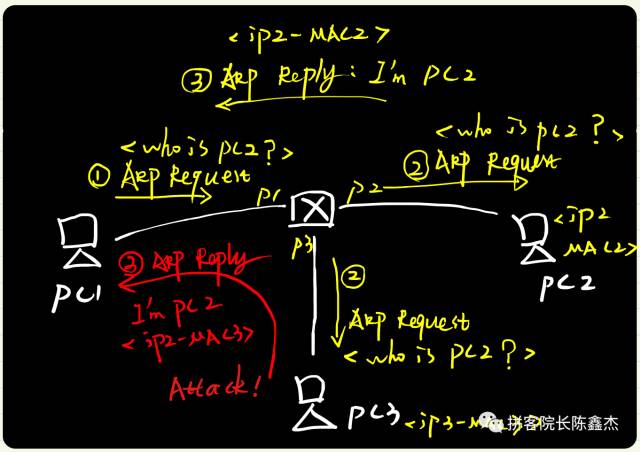 <ip2-MAC2>
③ Arp Reply: I'm PC2
<who is pc2?>
① Arp Request
<who is pc2?>
② Arp Request
p1
p2
p3
<ip2
MAC2>
PC1
PC2
③ Arp Reply
I'm pc2
<ip2-MAC3>
Attack!
②
Arp Request
<who is pc2?>
PC3
<ip3-
拼客院长陈鑫杰